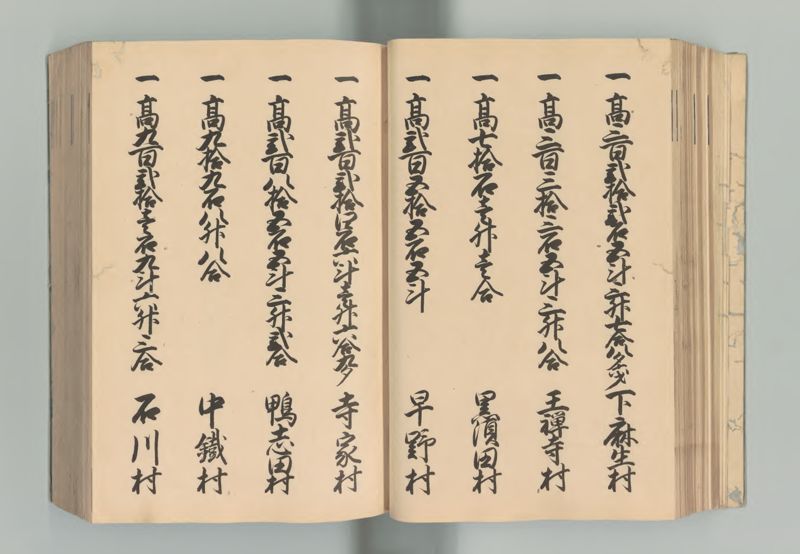 一 高三百弐拾弐石五斗三升七合八夕弐才 下麻生村
一 高三百三拾三石五斗三升八合 王禅寺村
一 高七拾石壱升壱合 黒須田村
一 高弐百五拾五石五斗 早野村
一 高弐百弐拾四石六斗壱升六合九夕 寺家村
一 高弐百八拾五石五斗三升弐合 鴨志田村
一 高九拾九石八升八合 中鐵村
一 高九百弐拾壱石九斗六升三合 石川村